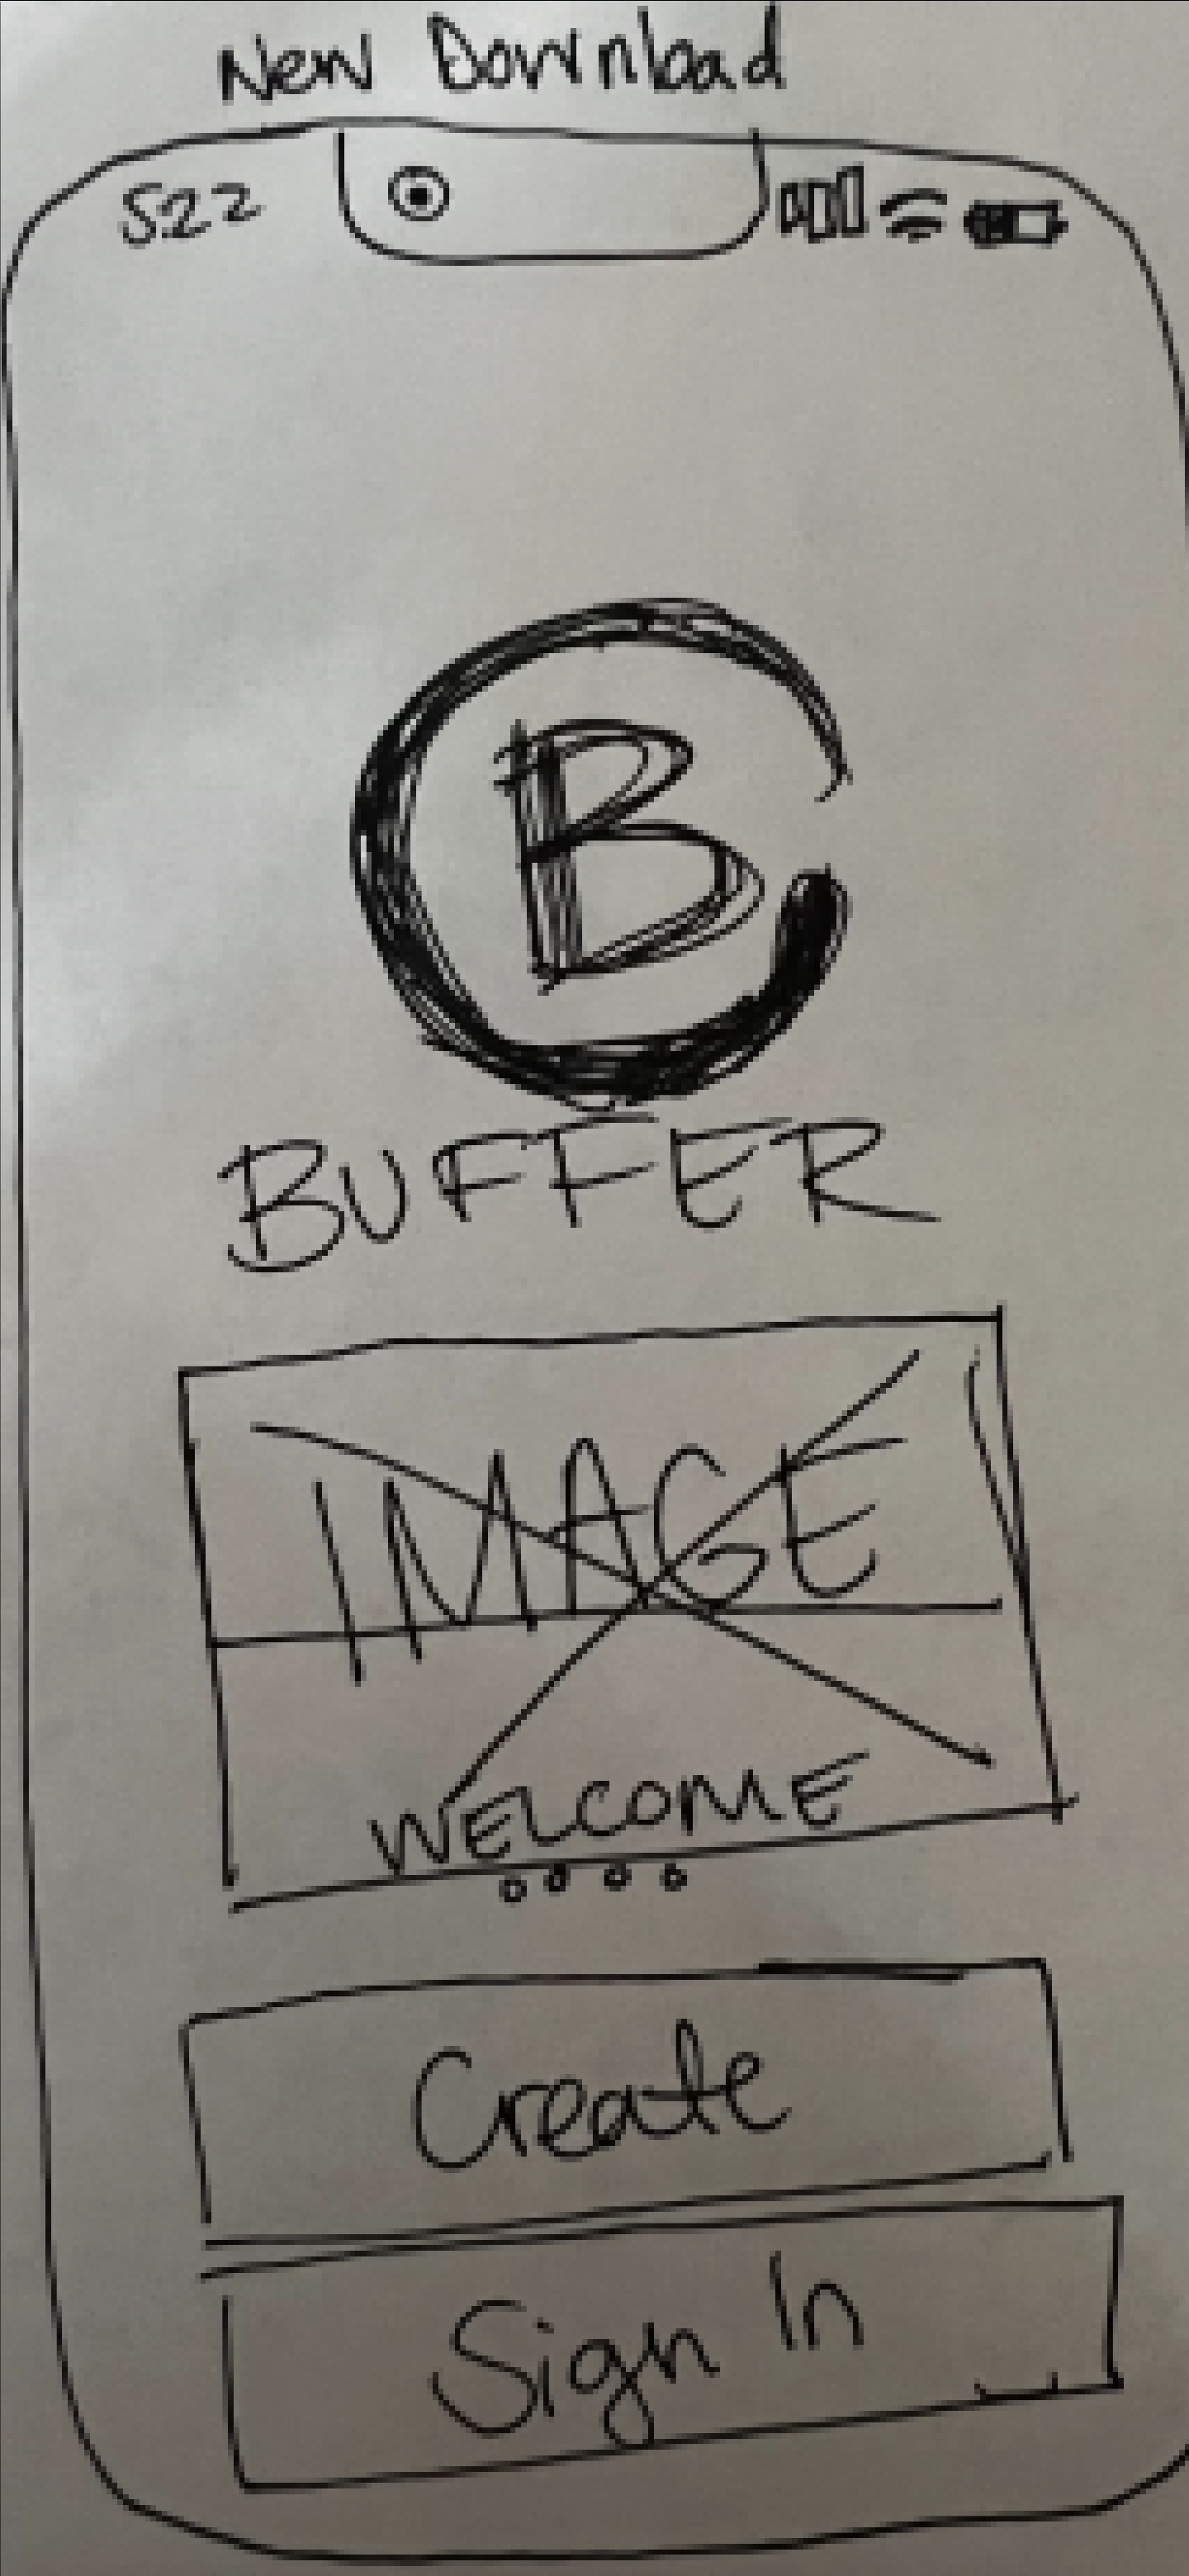 New Download
5:22
B
BUFFER
IMAGE
WELCOME
Create
Sign In